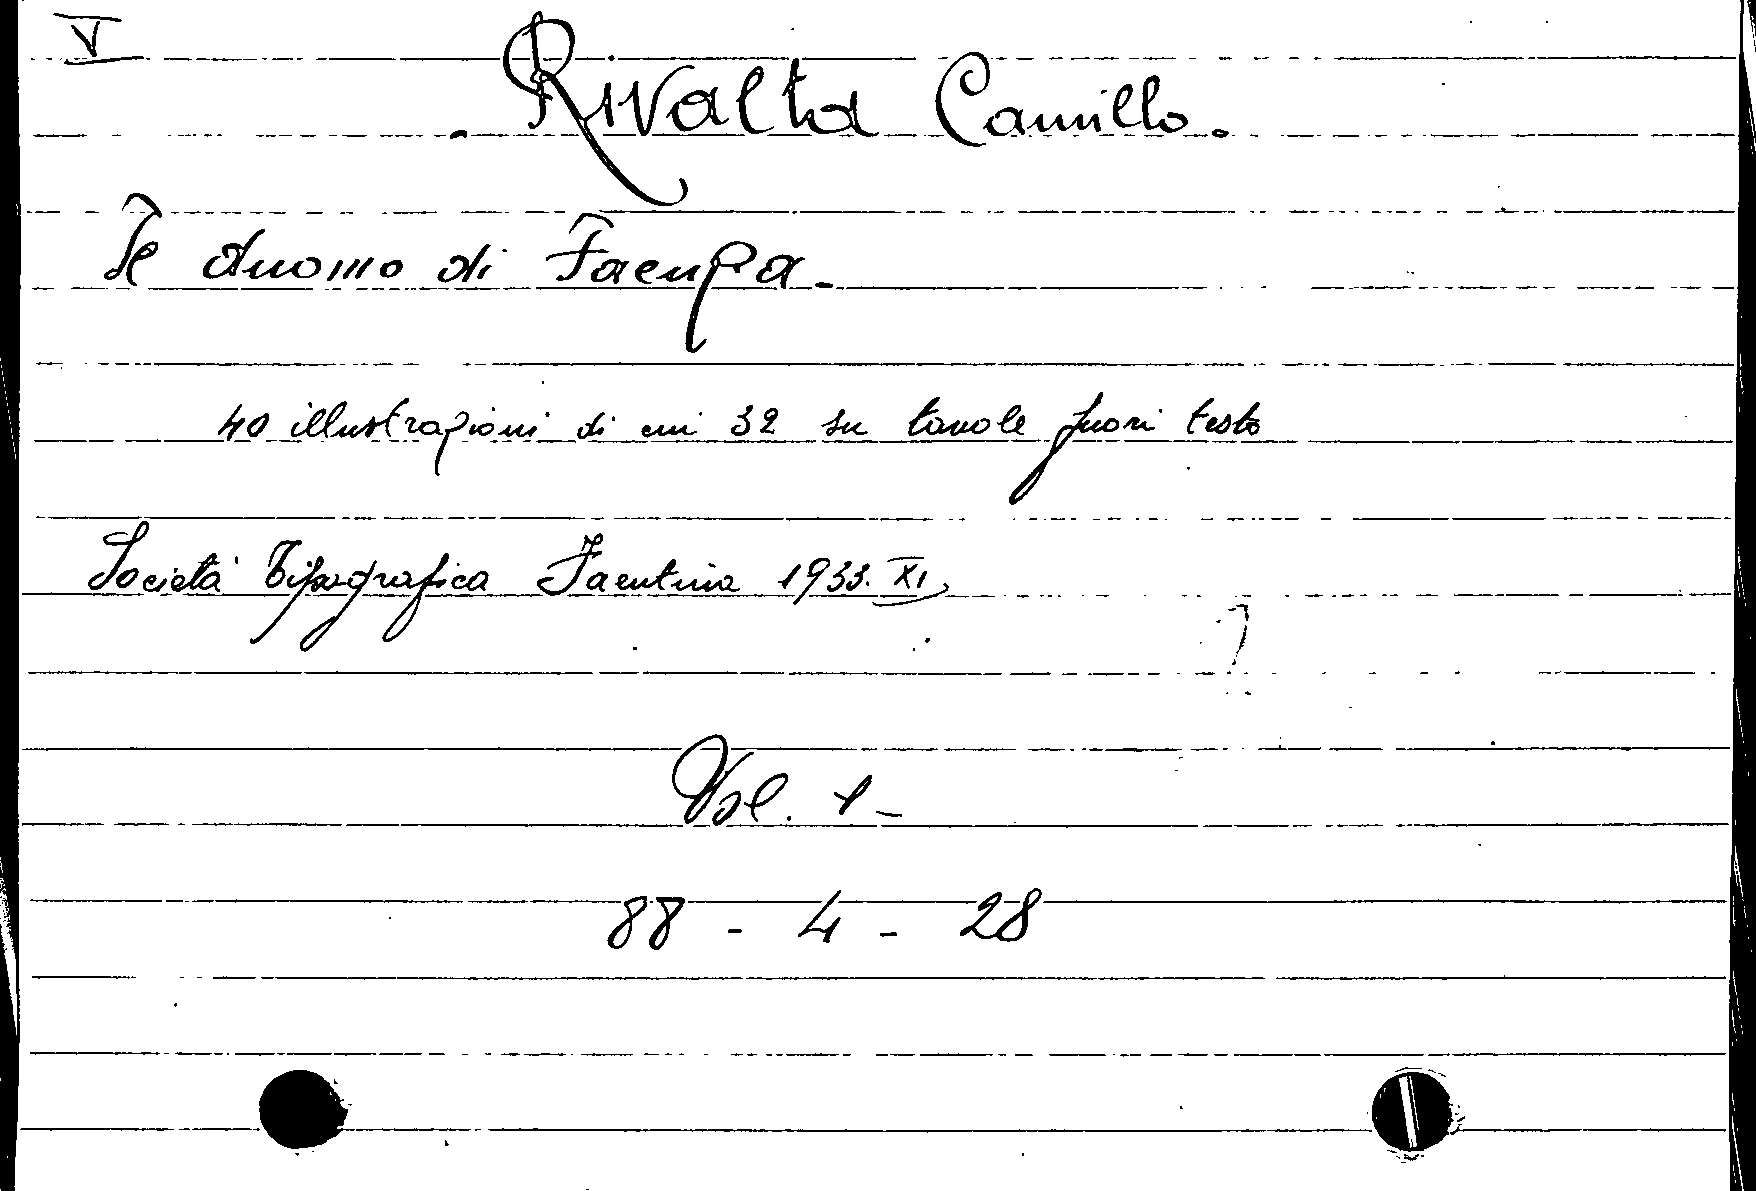 V
- Rivalta Camillo.
Il duomo di Faenza.
40 illustrazioni di cui 32 su tavole fuori testo
Società Tipografica Faentina 1933. XI
Vol. 1-
88 - 4 - 28